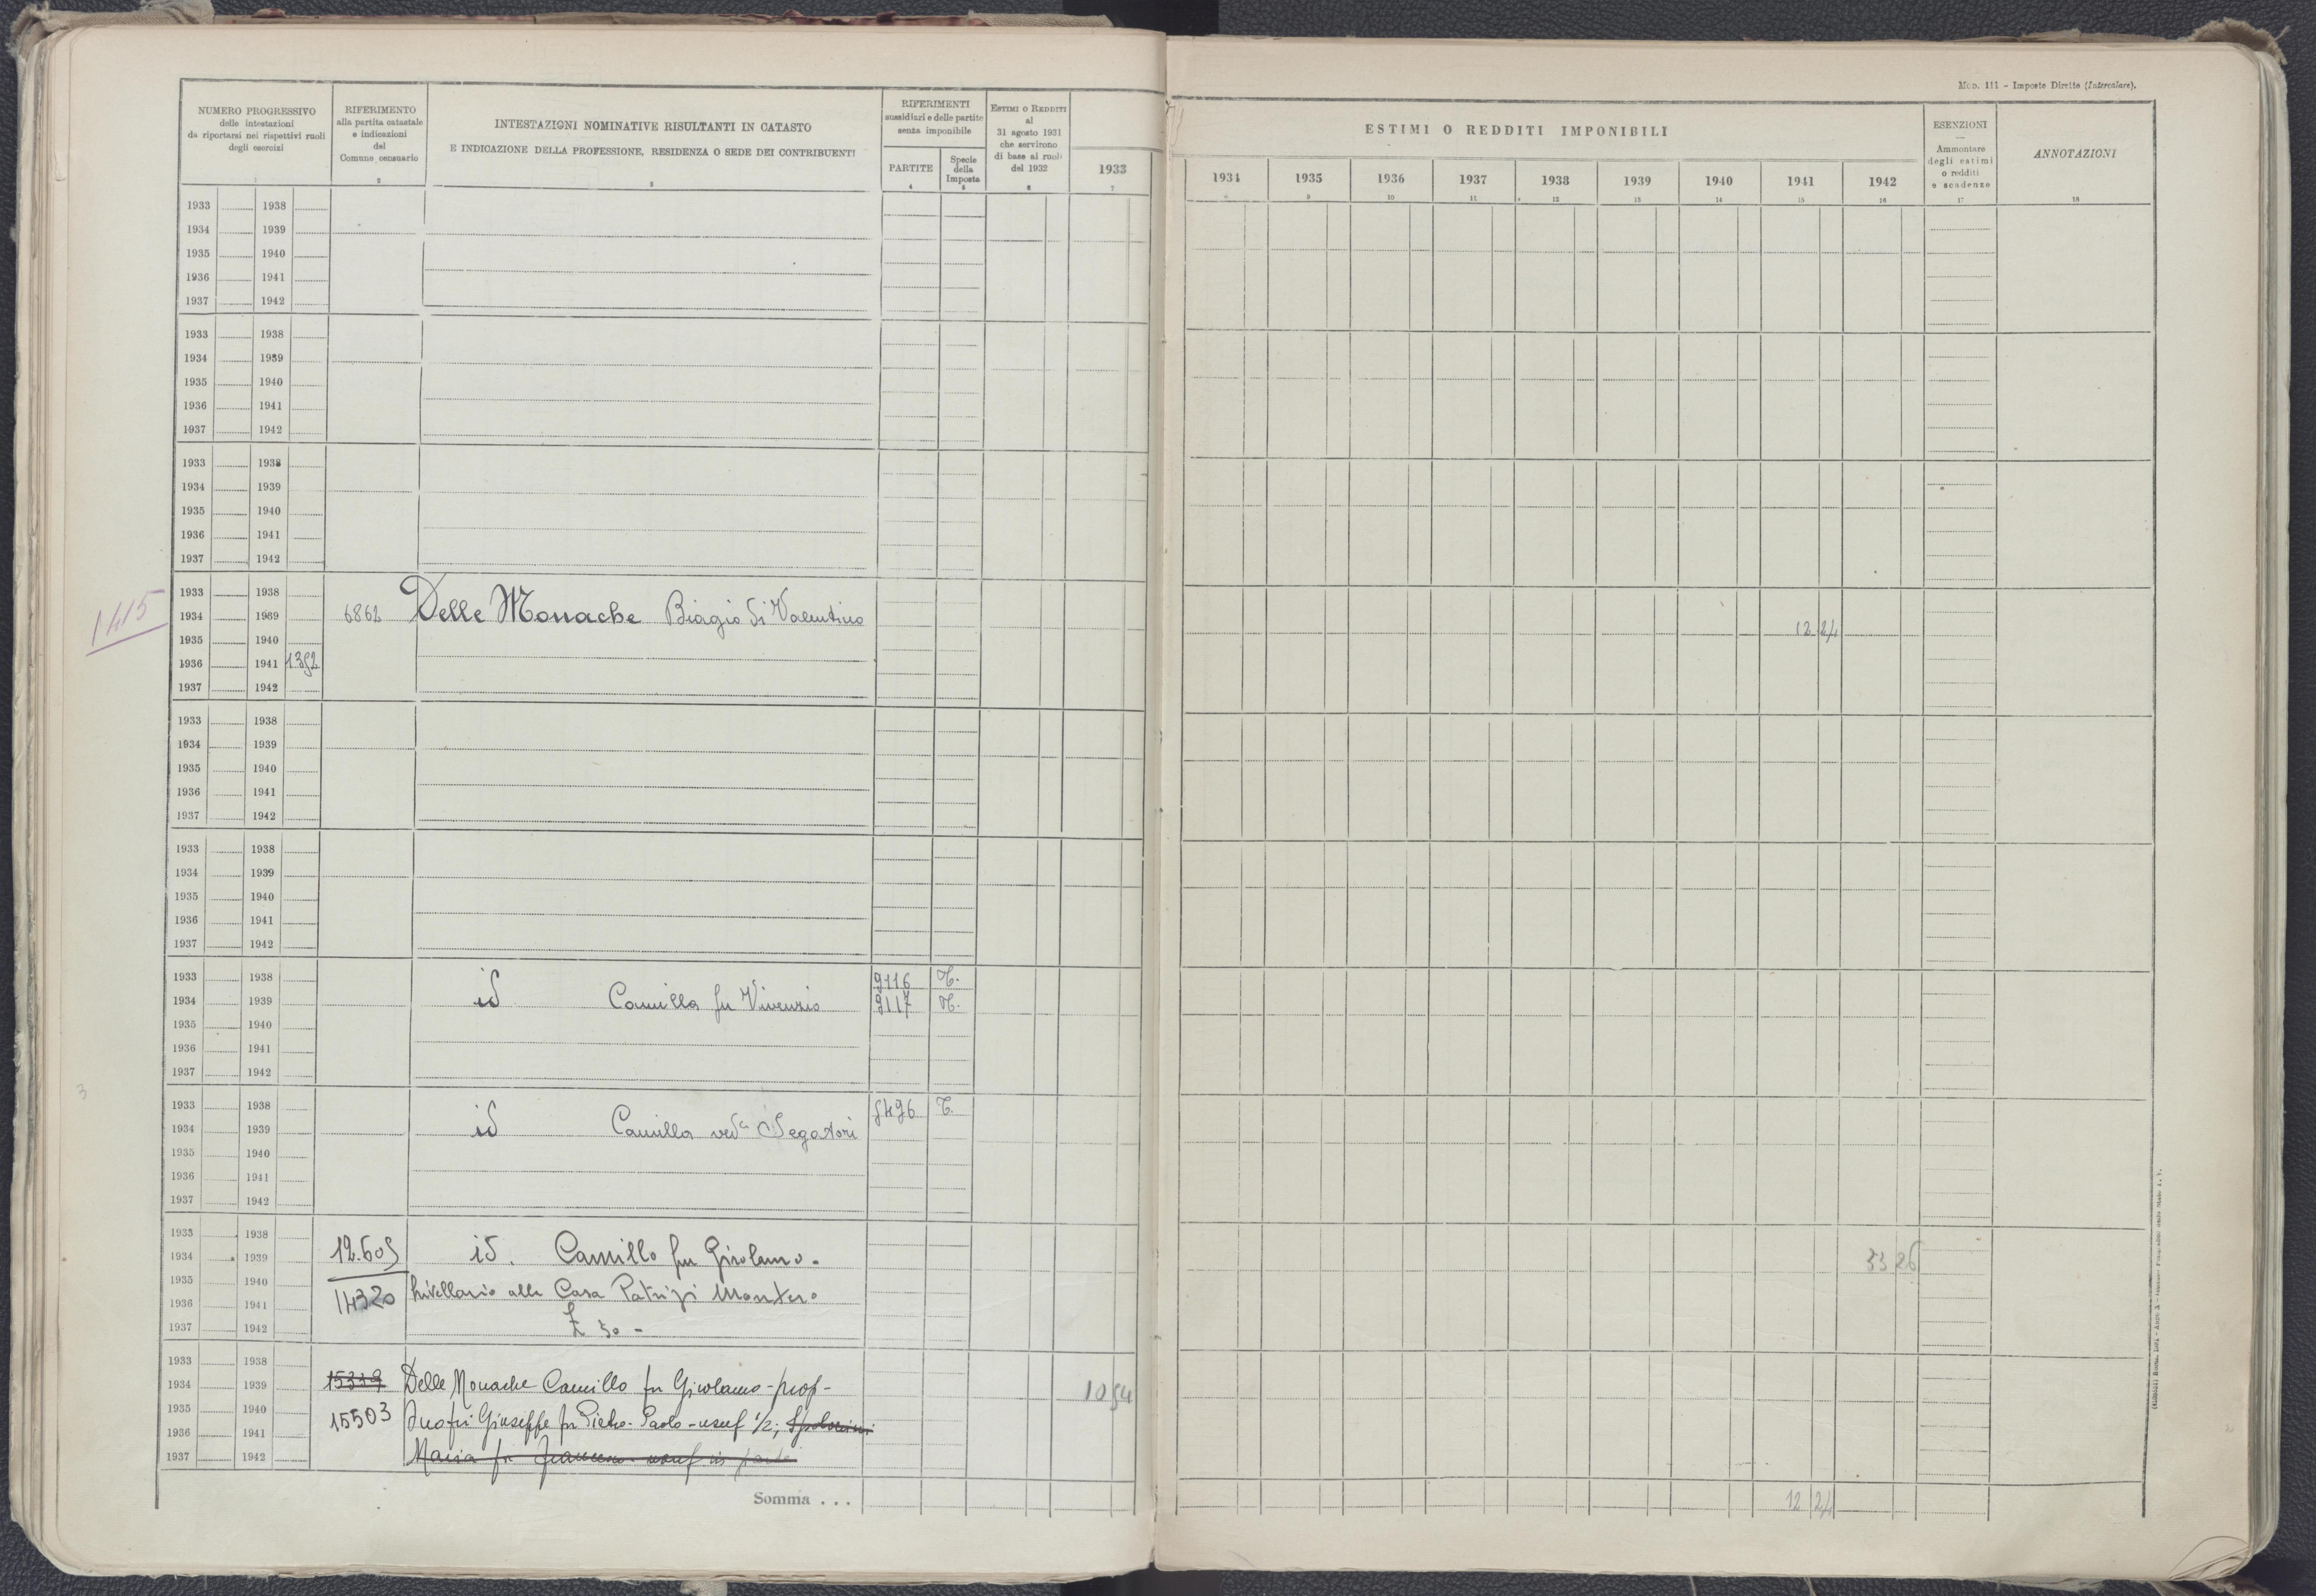 Mod. 111 - Imposte Dirette (Intercalare).
NUMERO PROGRESSIVO
delle intestazioni
da riportarsi nei rispettivi ruoli
degli esercizi
1
RIFERIMENTO
alla partita catastale
e indicazioni
del
Comune censuario
2
INTESTAZIONI NOMINATIVE RISULTANTI IN CATASTO
E INDICAZIONE DELLA PROFESSIONE, RESIDENZA O SEDE DEI CONTRIBUENTI
3
RIFERIMENTI
sussidiari e delle partite
senza imponibile
PARTITE
4
Specie
della
Imposta
5
ESTIMI O REDDITI
al
31 agosto 1931
che servirono
di base ai ruoli
del 1932
6
1933
7
ESTIMI O REDDITI IMPONIBILI
1934 1935 1936 1937 1938 1939 1940 1941 1942
9 10 11 12 13 14 15 16
ESENZIONI
Ammontare
degli estimi
o redditi
e scadenze
17
ANNOTAZIONI
18
1933 1938
1934 1939
1935 1940
1936 1941
1937 1942
1933 1938
1934 1939
1935 1940
1936 1941
1937 1942
1933 1938
1934 1939
1935 1940
1936 1941
1937 1942
1415
1933 1938
1934 1939 6862 Delle Monache Biagio di Valentino 12 24
1935 1940
1936 1941 1352
1937 1942
1933 1938
1934 1939
1935 1940
1936 1941
1937 1942
1933 1938
1934 1939
1935 1940
1936 1941
1937 1942
1933 1938 9116
1934 1939 id Camilla fu Vivenzio 9117
1935 1940
1936 1941
1937 1942
3
1933 1938 T.
1934 1939 id Camilla ved. Segatori
1935 1940
1936 1941
1937 1942
1933 1938
1934 1939 12.605 id. Camillo fu Girolamo. 53 26
1935 1940
1936 1941 14320 livellario alla Casa Patrizi Montoro
1937 1942 £ 50 -
1933 1938
1934 1939 15339 Delle Monache Camillo fu Girolamo - prop - 10 54
1935 1940 15503 Giuseppe fu Pietro-Paolo - usuf 1/2;
1936 1941
1937 1942 Maria fu usuf in parte
Somma . . . 12 24